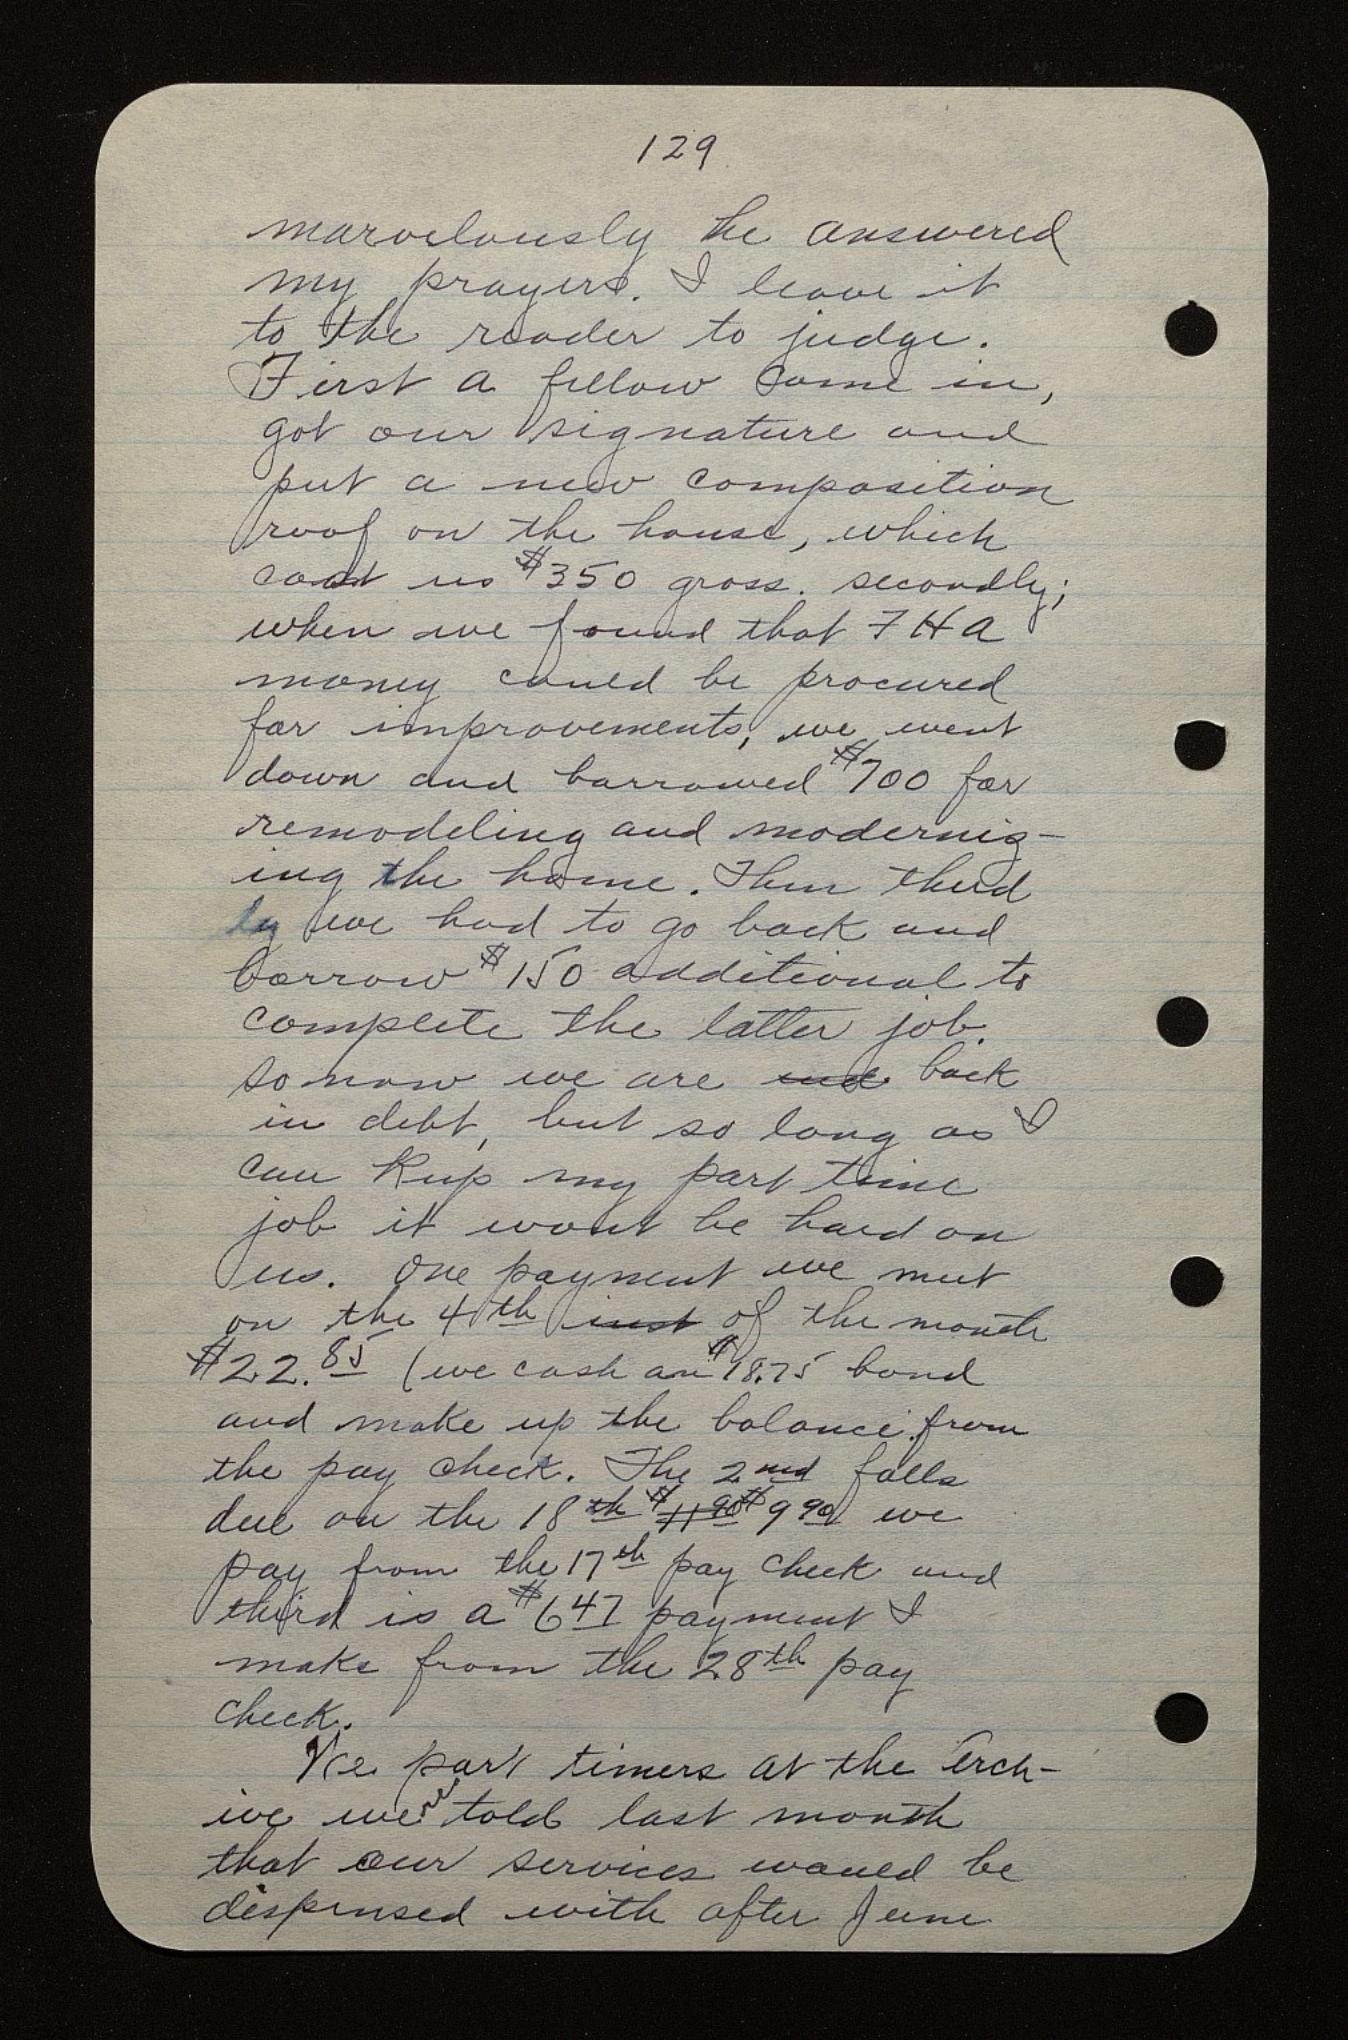 129
marvelously he answered
my prayers. I leave it
to the reader to judge.
First a fellow came in,
got our signature and
put a new composition
roof on the house, which
cost us $350 gross. secondly;
when we found that FHA
money could be procured
for improvements, we went
down and borrowed $700 for
remodeling and moderniz-
ing the home. Then third
ly we had to go back and
borrow $150 additional to
complete the latter job.
so now we are back
in debt, but so long as I
can keep my part time
job it wont be hard on
us. One payment we meet
on the 4th inst of the month
$22.85 (we cash an $18.75 bond
and make up the balance from
the pay check. The 2nd falls
due on the 18th $11 90 $9 90 we
pay from the 17th pay check and
third is a $6 47 payment I
make from the 28th pay
check.
We part timers at the Arch-
ive were told last month
that our services would be
dispensed with after June